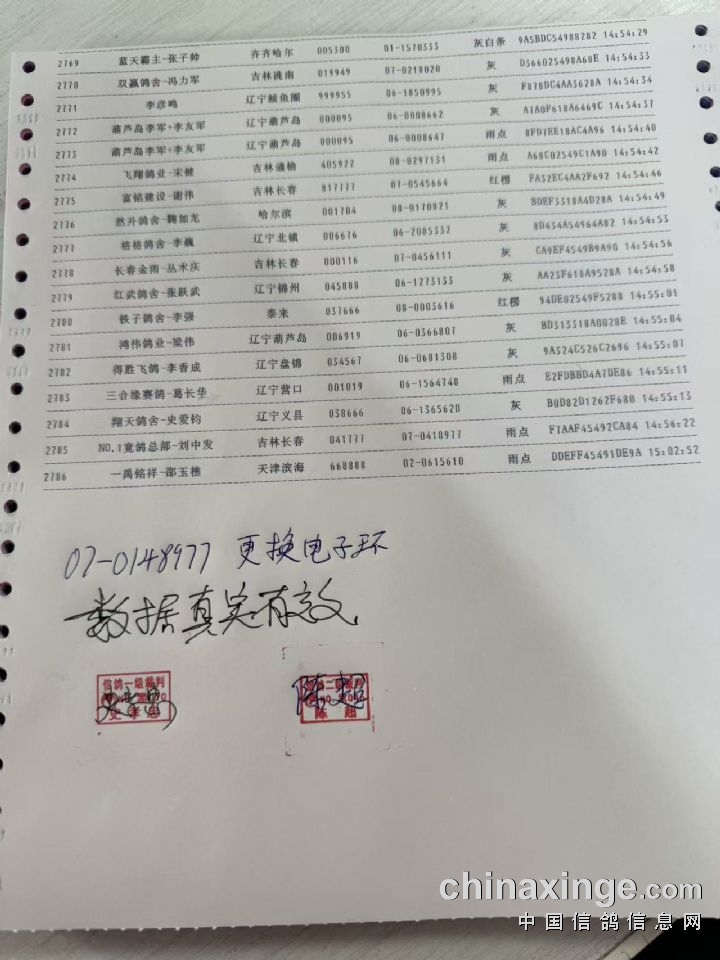 2769 蓝天霸主-张子帅 齐齐哈尔 005300 01-1570333 灰白条 9A5BDC54988282 14:54:29
2770 双赢鸽舍-冯力军 吉林洮南 019949 07-0218020 灰 D366025498A68E 14:54:33
2771 李彦鸣 辽宁鲅鱼圈 999955 06-1850995 灰 F078DC4AA3628A 14:54:34
2772 葫芦岛李军+李友军 辽宁葫芦岛 000095 06-0008662 灰 A7A0F618A6469C 14:54:37
2773 葫芦岛李军+李友军 辽宁葫芦岛 000095 06-0008647 雨点 8FD7EE18AC4A96 14:54:40
2774 飞翔鸽业-宋健 吉林通榆 405922 08-0297131 雨点 A68C02549C1A90 14:54:42
2775 富铭建设-谢伟 吉林长春 817777 07-0545664 红楞 FA32EC4AA2F692 14:54:46
2776 然升鸽舍-鞠加龙 哈尔滨 001704 08-0170821 灰 B0EF3318A4D28A 14:54:49
2777 格格鸽舍-李巍 辽宁北镇 006676 06-2085332 灰 8D434A54964A82 14:54:53
2778 长春金雨-丛术庆 吉林长春 000116 07-0456111 灰 CA9EF4549B9A90 14:54:56
2779 红武鸽舍-张跃武 辽宁锦州 045888 06-1273133 灰 AA23F618A9528A 14:54:58
2780 铁子鸽舍-李强 泰来 037666 08-0003616 红楞 94DE02549F5288 14:55:01
2781 鸿伟鸽业-梁伟 辽宁葫芦岛 006919 06-0366807 灰 BD313318A0028E 14:55:04
2782 得胜飞鸽-李香成 辽宁盘锦 034567 06-0681308 灰 9A324C526C2696 14:55:07
2783 三合缘赛鸽-葛长华 辽宁营口 001019 06-1564748 雨点 E2FDBBD4A7DE86 14:55:11
2784 翔天鸽舍-史爱钧 辽宁义县 038666 06-1365620 灰 B0D82D1262F680 14:55:13
2785 NO.1竟鸽总部-刘中发 吉林长春 041777 07-0418977 雨点 F7AAF45492CA84 14:56:22
2786 一禹铭祥-邵玉樵 天津滨海 668888 02-0615610 雨点 DDEFF45491DE9A 15:02:52
07-0148977 更换电子环
数据真实有效
信鸽一级裁判
陈超
陈 超
chinaxinge.com
中国信鸽信息网